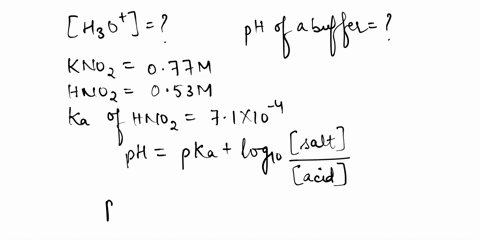 [H3O+] = ? pH of a buffer = ?
KNO2 = 0.77M
HNO2 = 0.53M
Ka of HNO2 = 7.1X10^-4
pH = pKa + log10 [salt]/[acid]